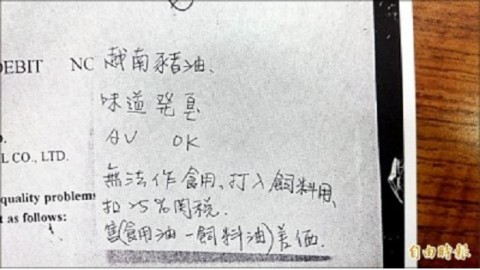 DEBIT NO
越南豬油.
味道異
AV OK
L CO., LTD.
無法作食用,打入飼料用,
quality problems
扣25%関税.
t as follows:
(食用油-飼料油)差価.
自由時報